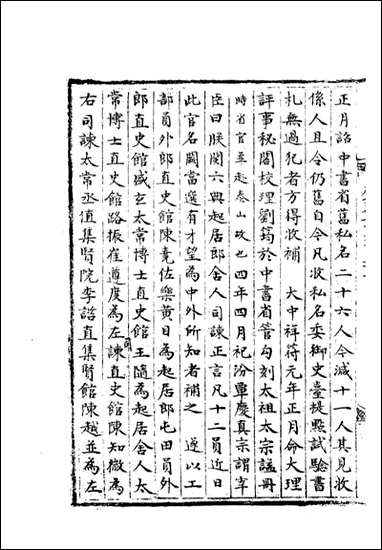 正月詔中書省舊私名二十六人今減十一人其見收
係人且令仍舊自今凡收私名委御史臺提點試驗書
札無過犯者方得收補　大中祥符元年正月命大理
評事秘閣校理劉筠於中書省管勾刻太祖太宗諡冊
時省官並赴泰山故也四年四月祀汾陰慶真宗謂宰
臣曰朕閱六典起居郎舍人司諫正言凡十二員近日
此官名闕當選有才望為中外所知者補之　遂以工
部員外郎直史館陳堯佐樂黃目為起居郎屯田員外
郎直史館盛玄太常博士直史館王隨為起居舍人太
常博士直史館路振崔遵度為左司諫直史館陳知微為
右司諫太常丞值集賢院李諮直集賢館陳越並為左